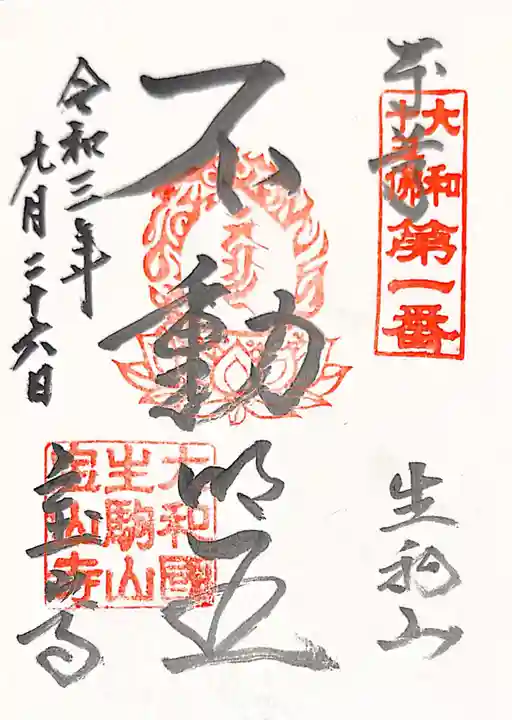 奉拝
大和
十三佛
第一番
生駒山
不動明王
大和國
生駒山
宝山寺
令和三年
九月二十六日
宝山寺